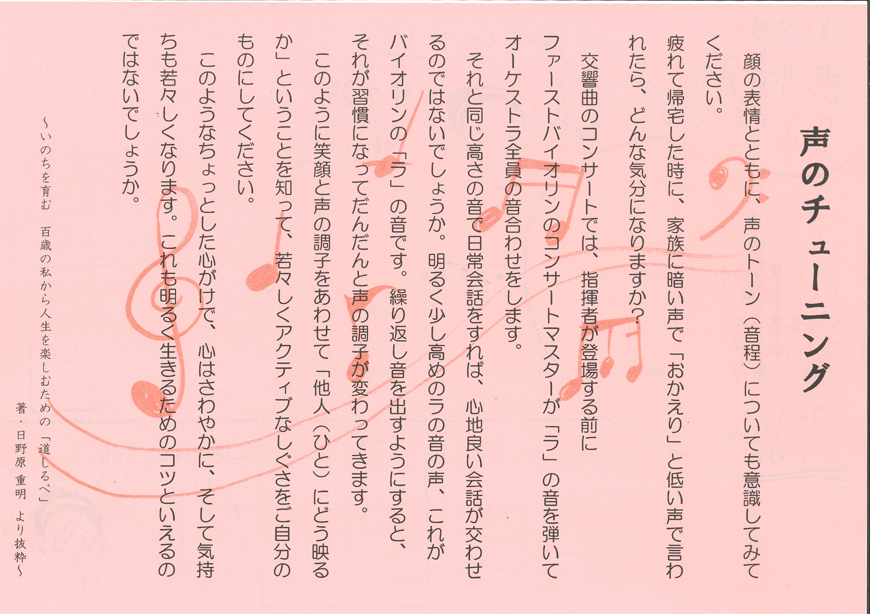 声のチューニング
顔の表情とともに、声のトーン（音程）についても意識してみて
ください。
疲れて帰宅した時に、家族に暗い声で「おかえり」と低い声で言わ
れたら、どんな気分になりますか？
交響曲のコンサートでは、指揮者が登場する前に
ファーストバイオリンのコンサートマスターが「ラ」の音を弾いて
オーケストラ全員の音合わせをします。
それと同じ高さの音で日常会話をすれば、心地良い会話が交わせ
るのではないでしょうか。明るく少し高めのラの音の声、これが
バイオリンの「ラ」の音です。繰り返し音を出すようにすると、
それが習慣になってだんだんと声の調子が変わってきます。
このように笑顔と声の調子をあわせて「他人（ひと）にどう映る
か」ということを知って、若々しくアクティブなしぐさをご自分の
ものにしてください。
このようなちょっとした心がけで、心はさわやかに、そして気持
ちも若々しくなります。これも明るく生きるためのコツといえるの
ではないでしょうか。
～いのちを育む　百歳の私から人生を楽しむための「道しるべ」
著・日野原 重明 より抜粋～